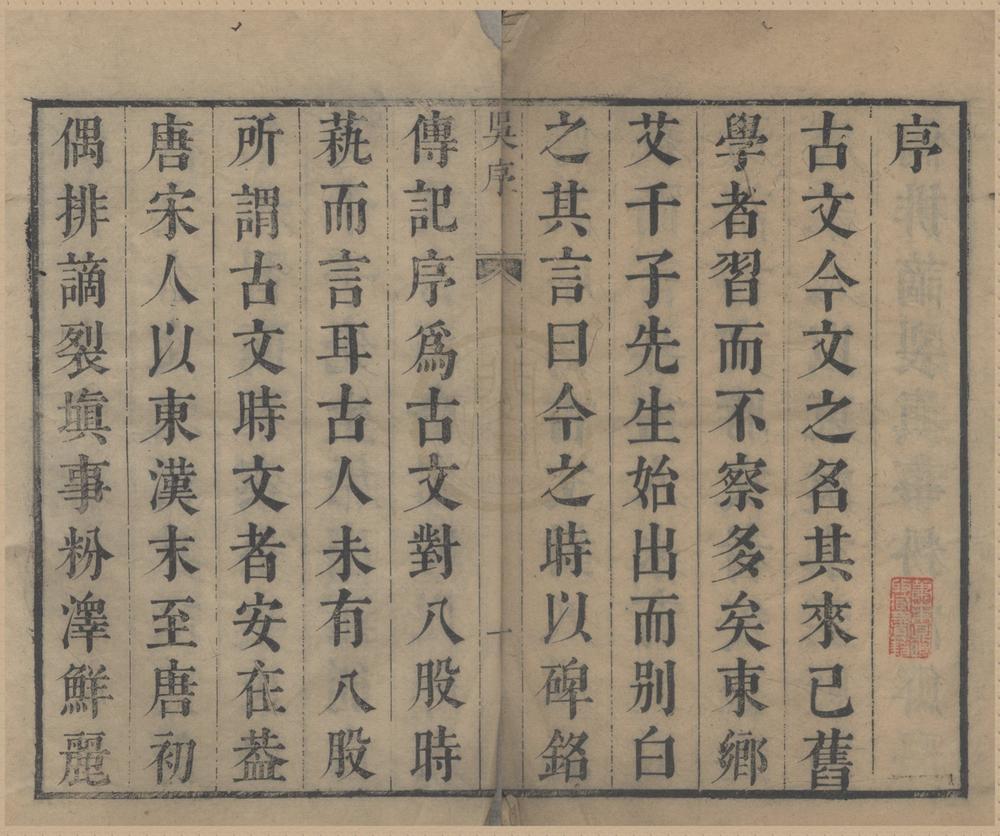 序
古文今文之名其來已舊
學者習而不察多矣東鄉
艾千子先生始出而别白
之其言曰今之時以碑銘
吳序
一
傳記序爲古文對八股時
蓺而言耳古人未有八股
所謂古文時文者安在葢
唐宋人以東漢末至唐初
偶排謫裂塡事粉澤鮮麗